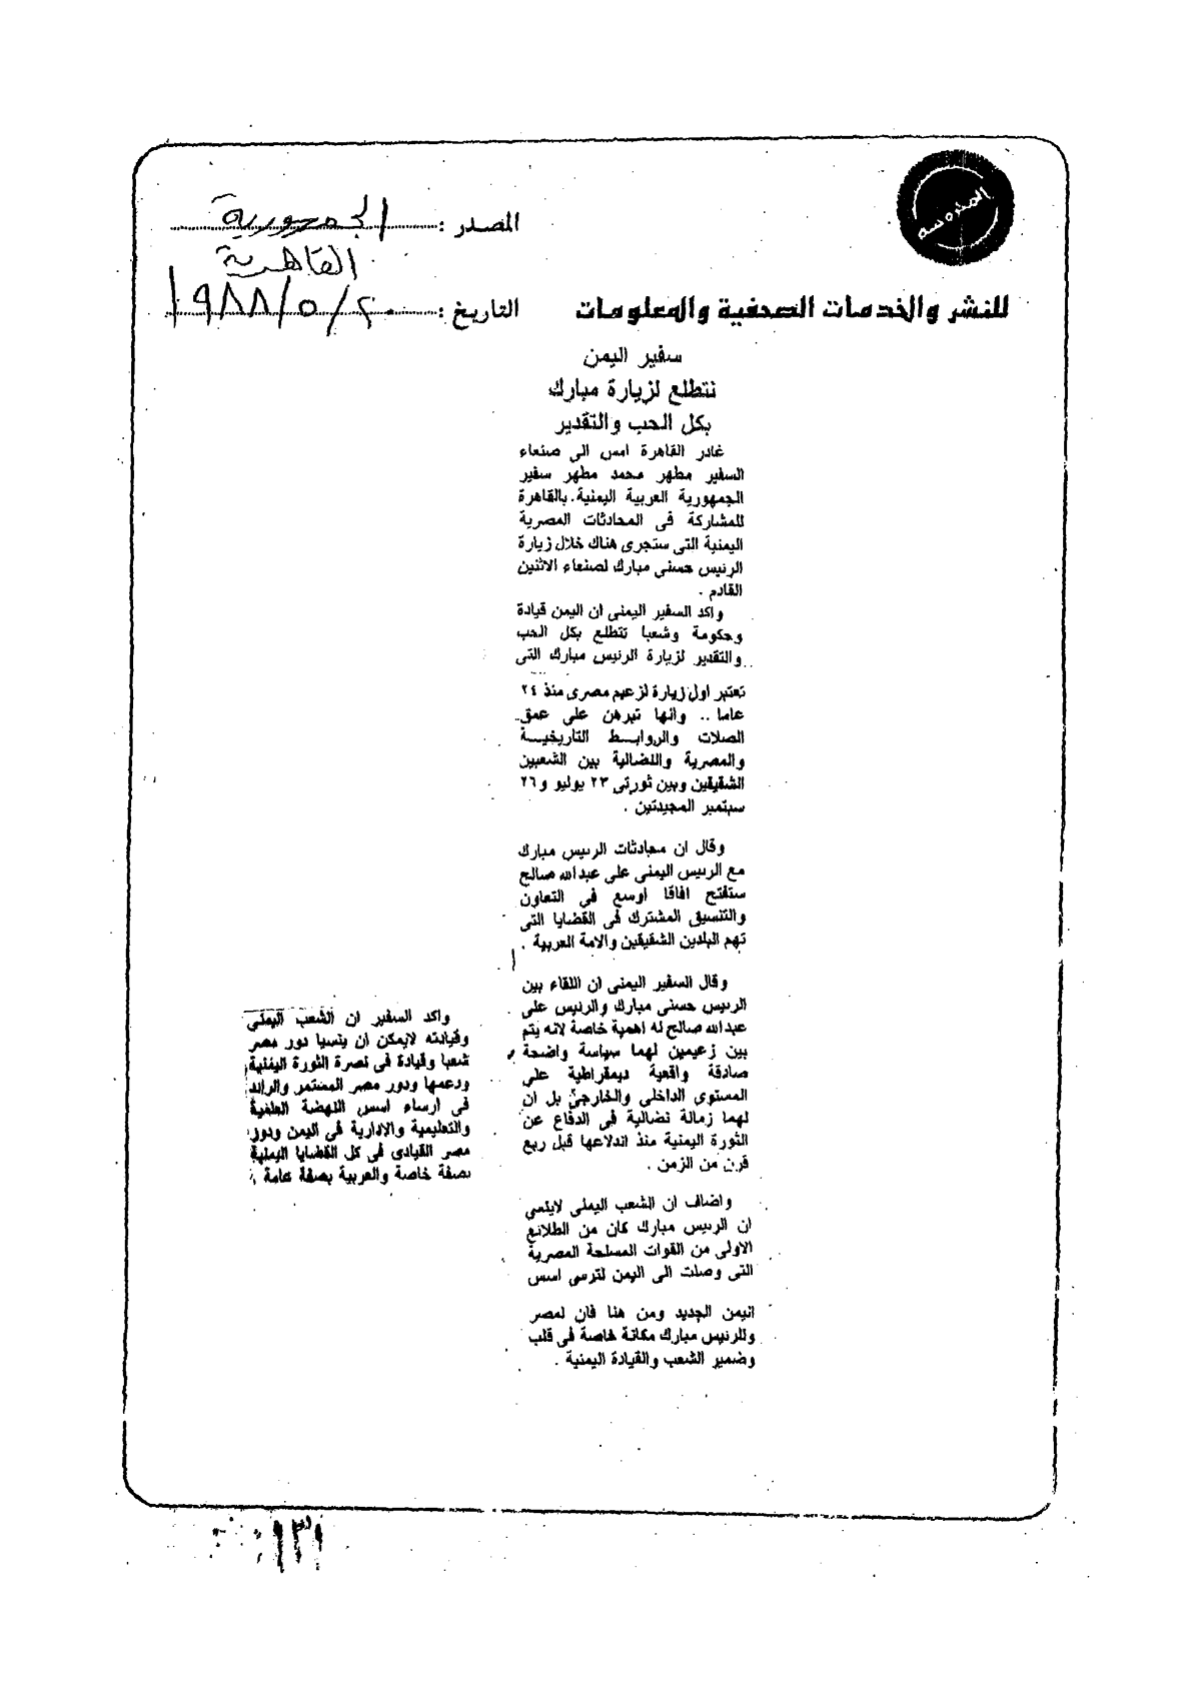 المحروسة
للنشر والخدمات الصحفية والمعلومات
المصدر : الجمهورية
القاهرية
التاريخ : ٢٠/٥/١٩٨٨
سفير اليمن
نتطلع لزيارة مبارك
بكل الحب والتقدير
غادر القاهرة امس الى صنعاء
السفير مطهر محمد مطهر سفير
الجمهورية العربية اليمنية بالقاهرة
للمشاركة فى المحادثات المصرية
اليمنية التى ستجرى هناك خلال زيارة
الرئيس حسنى مبارك لصنعاء الاثنين
القادم .
واكد السفير اليمنى ان اليمن قيادة
وحكومة وشعبا تتطلع بكل الحب
والتقدير لزيارة الرئيس مبارك التى
تعتبر اول زيارة لزعيم مصرى منذ ٢٤
عاما .. وانها تبرهن على عمق
الصلات والروابط التاريخية
والمصرية والنضالية بين الشعبين
الشقيقين وبين ثورتى ٢٣ يوليو و ٢٦
سبتمبر المجيدتين .
وقال ان محادثات الرئيس مبارك
مع الرئيس اليمنى على عبدالله صالح
ستفتح افاقا اوسع فى التعاون
والتنسيق المشترك فى القضايا التى
تهم البلدين الشقيقين والامة العربية .
وقال السفير اليمنى ان اللقاء بين
الرئيس حسنى مبارك والرئيس على
عبدالله صالح له اهمية خاصة لانه يتم
بين زعيمين لهما سياسة واضحة
صادقة واقعية ديمقراطية على
المستوى الداخلى والخارجى بل ان
لهما زمالة نضالية فى الدفاع عن
الثورة اليمنية منذ اندلاعها قبل ربع
قرن من الزمن .
واضاف ان الشعب اليمنى لاينسى
ان الرئيس مبارك كان من الطلائع
الاولى من القوات المسلحة المصرية
التى وصلت الى اليمن لترسى اسس
اليمن الجديد ومن هنا فان لمصر
وللرئيس مبارك مكانة خاصة فى قلب
وضمير الشعب والقيادة اليمنية .
واكد السفير ان الشعب اليمنى
وقيادته لايمكن ان ينسيا دور مصر
شعبا وقيادة فى نصرة الثورة اليمنية
ودعمها ودور مصر المستمر والرائد
فى ارساء اسس النهضة العلمية
والتعليمية والادارية فى اليمن ودور
مصر القيادى فى كل القضايا اليمنية
بصفة خاصة والعربية بصفة عامة .